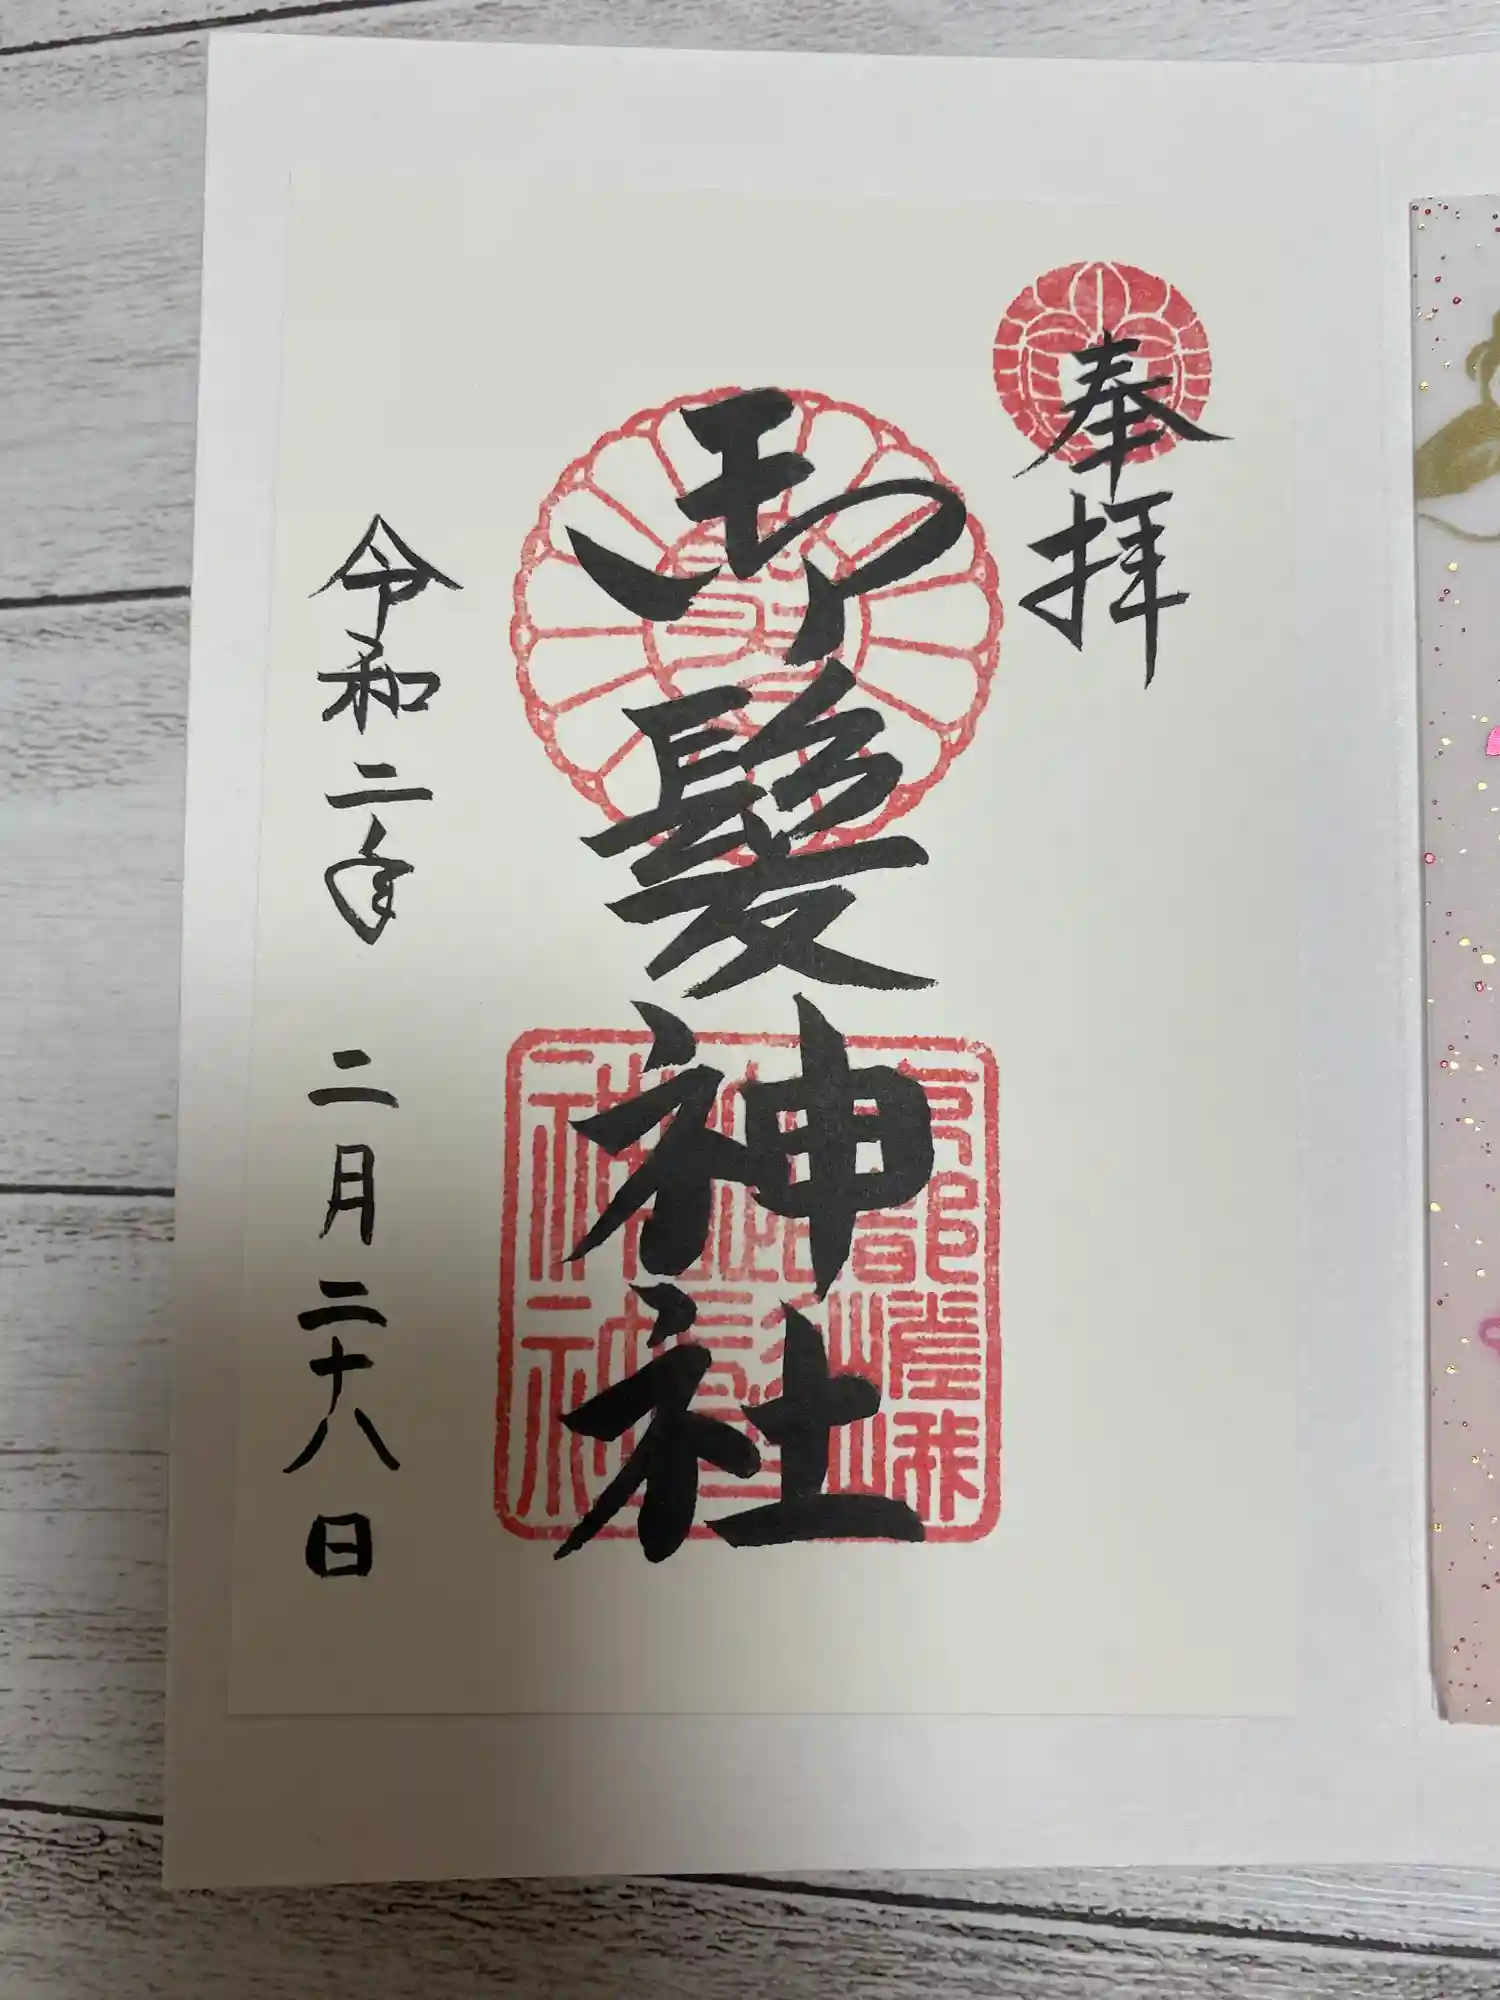 奉拝
御髪神社
京都嵯峨
御髪
神社
令和二年 二月二十八日